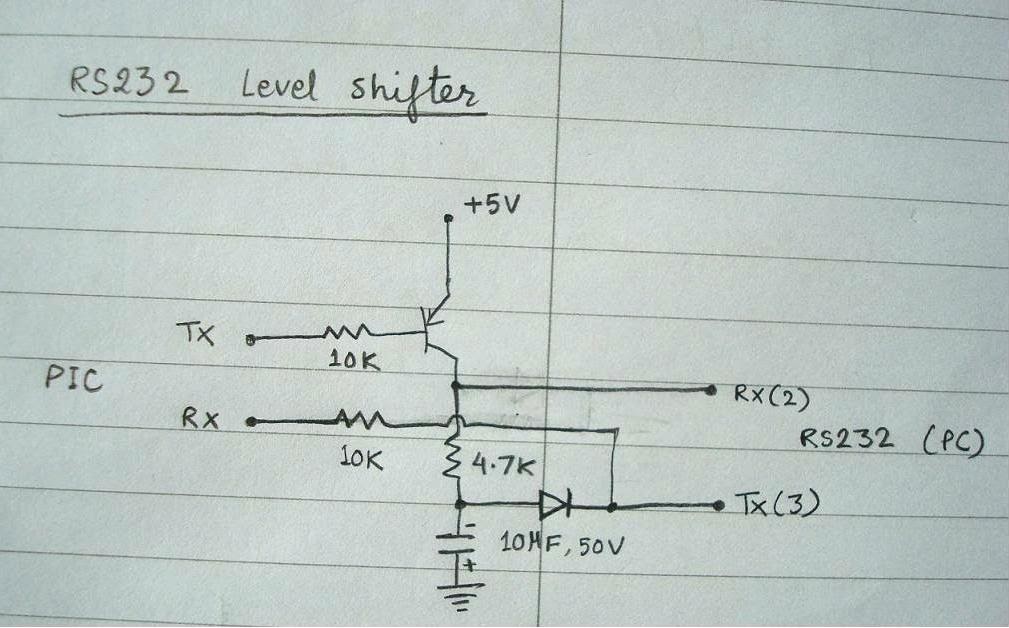 RS232 Level shifter
+5V
TX
10K
PIC
RX(2)
RX
RS232 (PC)
10K
4.7K
Tx(3)
-
10µF, 50V
+